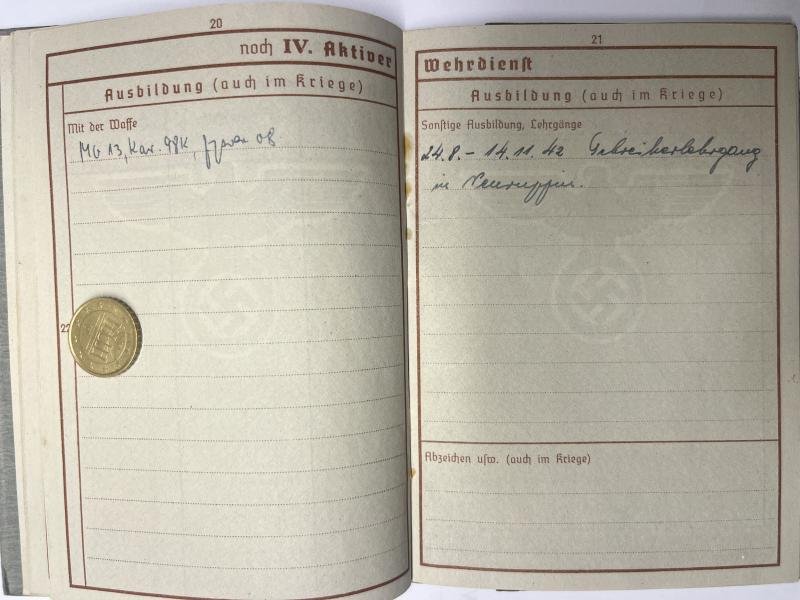 20
noch IV. Aktiver
Ausbildung (auch im Kriege)
Mit der Waffe
MG 13, Kar. 98K, 08
22
21
Wehrdienst
Ausbildung (auch im Kriege)
Sonstige Ausbildung, Lehrgänge
24.8. – 14.11. 42 Schreiberlehrgang
in Neuruppin.
Abzeichen usw. (auch im Kriege)